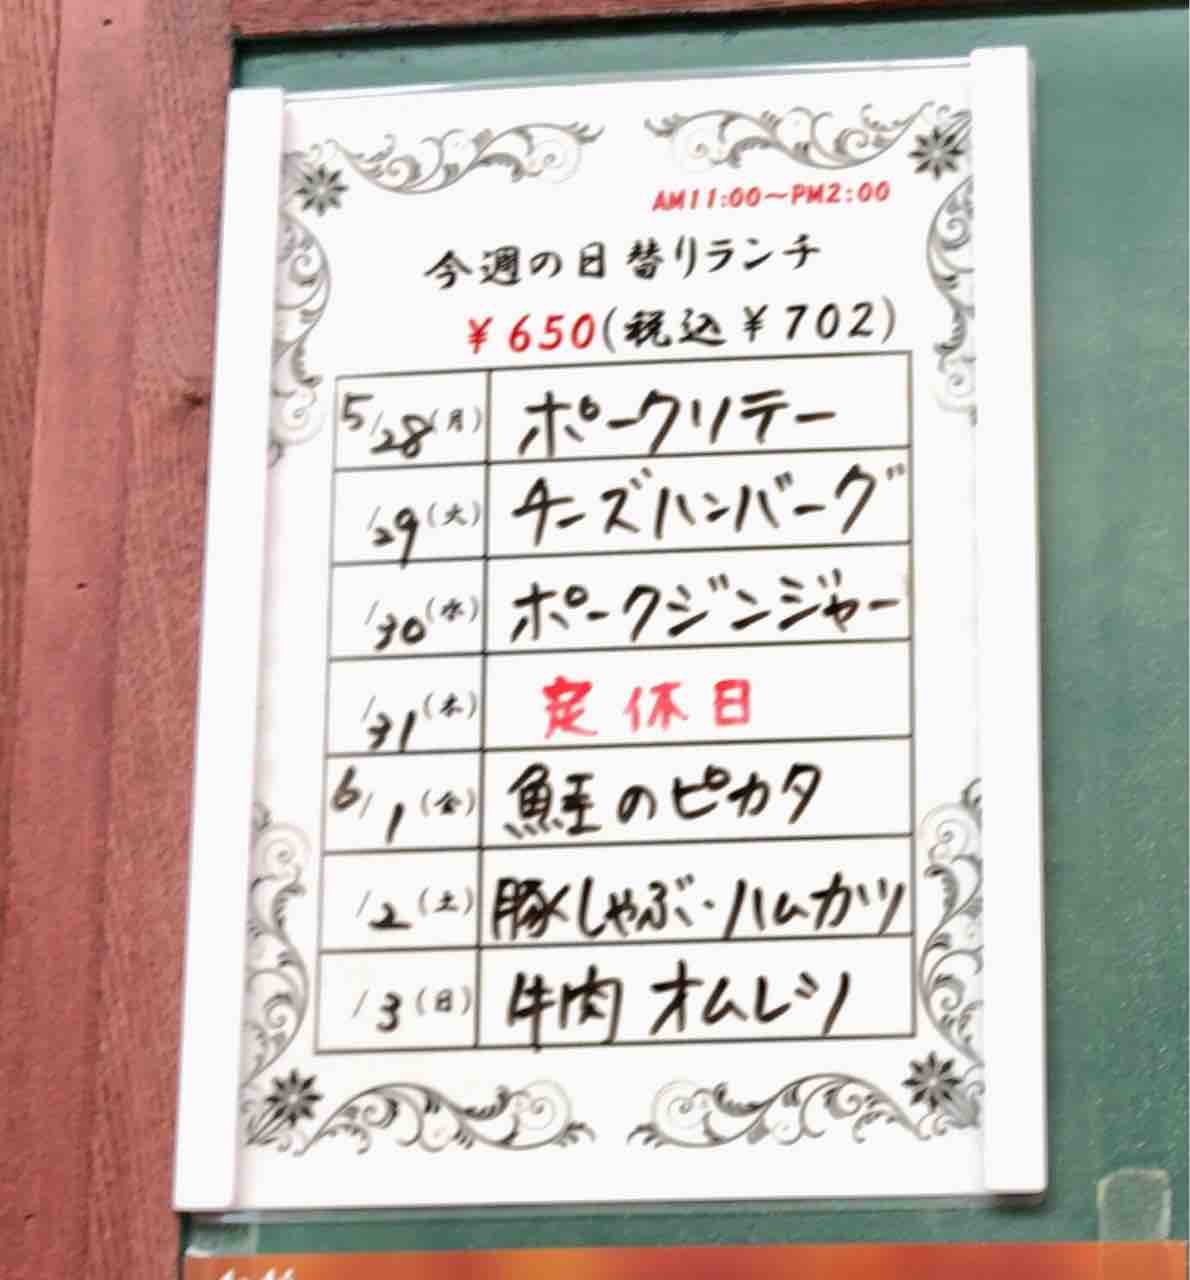 AM11:00～PM2:00
今週の日替りランチ
￥650(税込￥702)
5/28(月) ポークソテー
/29(火) チーズハンバーグ
/30(水) ポークジンジャー
/31(木) 定休日
6/1(金) 鮭のピカタ
/2(土) 豚しゃぶ・ハムカツ
/3(日) 牛肉オムレツ